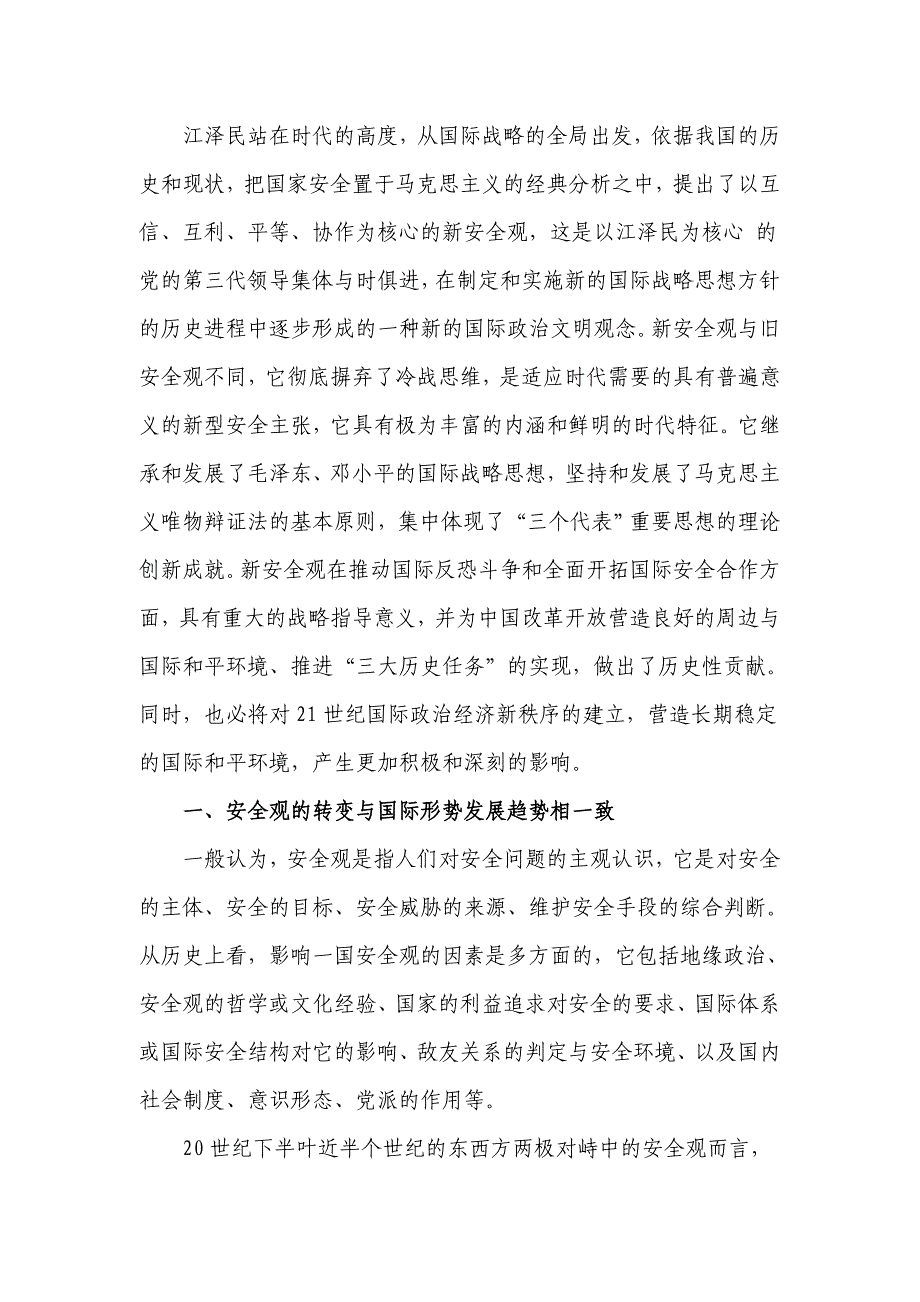 江泽民站在时代的高度，从国际战略的全局出发，依据我国的历
史和现状，把国家安全置于马克思主义的经典分析之中，提出了以互
信、互利、平等、协作为核心的新安全观，这是以江泽民为核心 的
党的第三代领导集体与时俱进，在制定和实施新的国际战略思想方针
的历史进程中逐步形成的一种新的国际政治文明观念。新安全观与旧
安全观不同，它彻底摒弃了冷战思维，是适应时代需要的具有普遍意
义的新型安全主张，它具有极为丰富的内涵和鲜明的时代特征。它继
承和发展了毛泽东、邓小平的国际战略思想，坚持和发展了马克思主
义唯物辩证法的基本原则，集中体现了“三个代表”重要思想的理论
创新成就。新安全观在推动国际反恐斗争和全面开拓国际安全合作方
面，具有重大的战略指导意义，并为中国改革开放营造良好的周边与
国际和平环境、推进“三大历史任务”的实现，做出了历史性贡献。
同时，也必将对 21 世纪国际政治经济新秩序的建立，营造长期稳定
的国际和平环境，产生更加积极和深刻的影响。
一、安全观的转变与国际形势发展趋势相一致
一般认为，安全观是指人们对安全问题的主观认识，它是对安全
的主体、安全的目标、安全威胁的来源、维护安全手段的综合判断。
从历史上看，影响一国安全观的因素是多方面的，它包括地缘政治、
安全观的哲学或文化经验、国家的利益追求对安全的要求、国际体系
或国际安全结构对它的影响、敌友关系的判定与安全环境、以及国内
社会制度、意识形态、党派的作用等。
20 世纪下半叶近半个世纪的东西方两极对峙中的安全观而言，